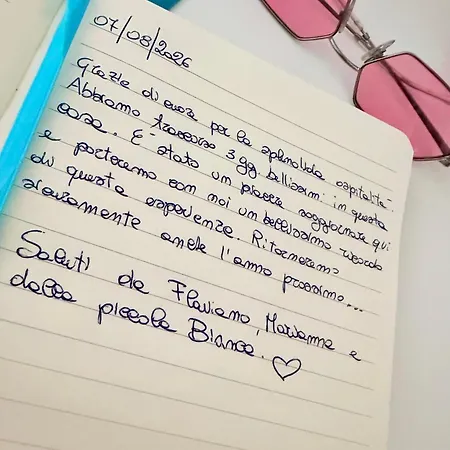 07/08/2026
Grazie di cuore per la splendida ospitalità.
Abbiamo trascorso 3 gg bellissimi in questa
casa. È stato un piacere soggiornare qui
e porteremo con noi un bellissimo ricordo
di questa esperienza. Ritorneremo
sicuramente anche l'anno prossimo...
Saluti da Flaviano, Marianna e
dalla piccola Bianca. ♡